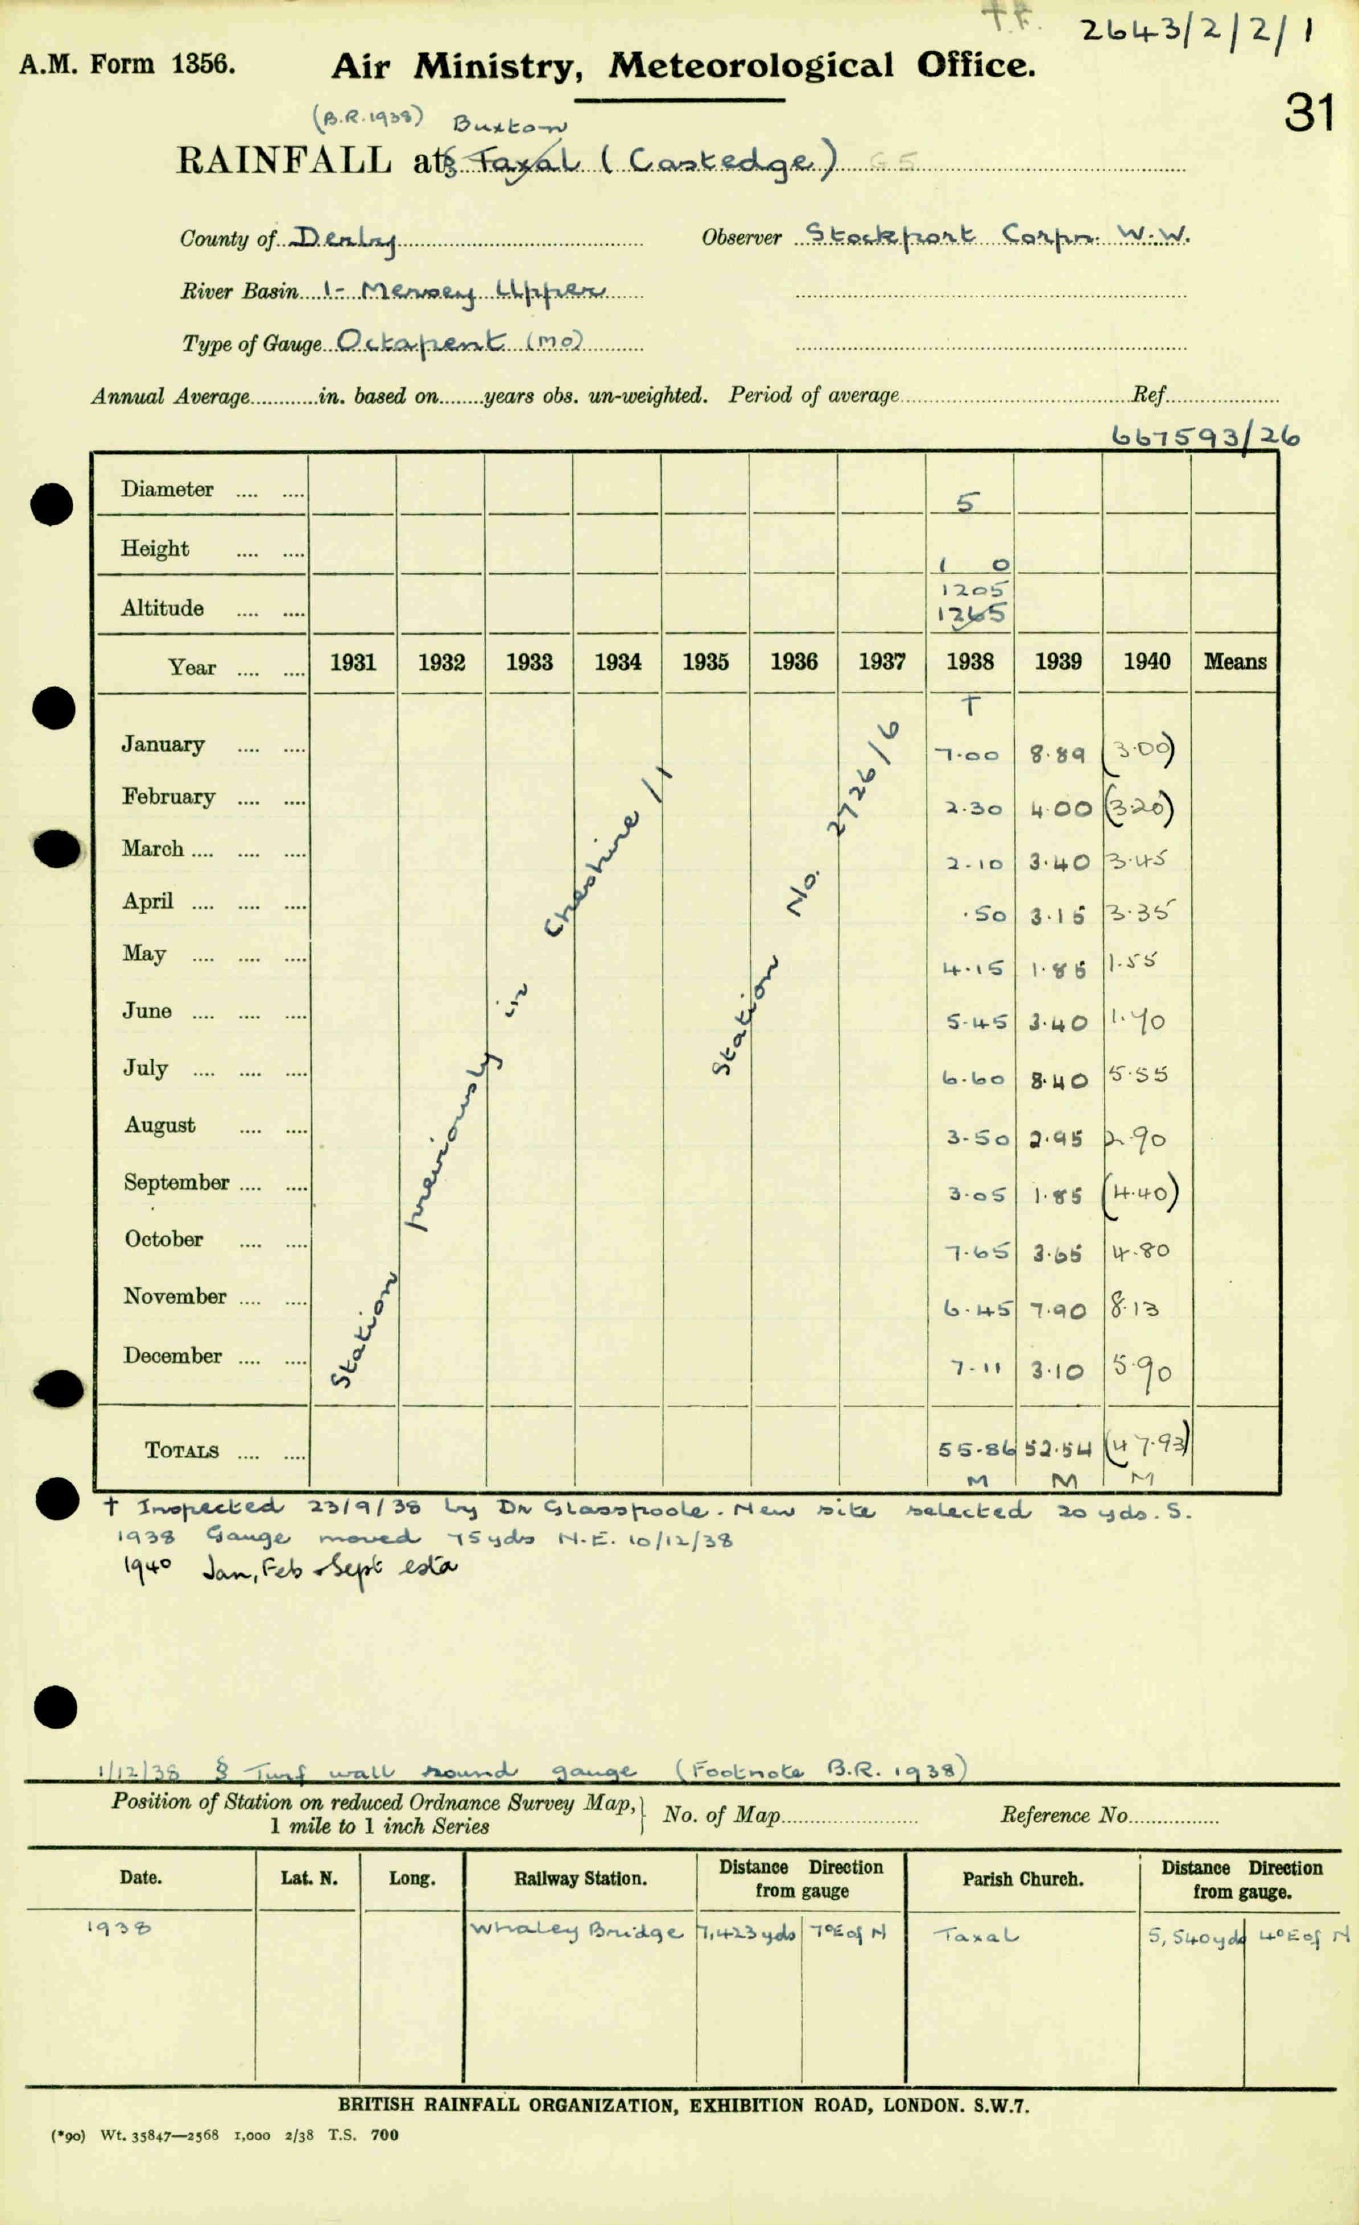 T.F. 2643/2/2/1
A.M. Form 1356. Air Ministry, Meteorological Office.
31
(B.R. 1938) Buxton
RAINFALL at § Taxal (Castedge) G5
County of Derby Observer Stockport Corpn. W.W.
River Basin 1- Mersey Upper
Type of Gauge Octapent (MO)
Annual Average............in. based on........years obs. un-weighted. Period of average............Ref............
667593/26
Diameter .... .... 5
Height .... .... 1 0
1205
Altitude .... .... 1265
Year .... .... 1931 1932 1933 1934 1935 1936 1937 1938 1939 1940 Means
†
January .... .... 7.00 8.89 (3.00)
February .... .... 2.30 4.00 (3.20)
March .... .... .... 2.10 3.40 3.45
April .... .... .... .50 3.15 3.35
May .... .... .... 4.15 1.85 1.55
June .... .... .... 5.45 3.40 1.70
July .... .... .... 6.60 8.40 5.55
August .... .... 3.50 2.95 2.90
September .... .... 3.05 1.85 (4.40)
October .... .... 7.65 3.65 4.80
November .... .... 6.45 7.90 8.13
December .... .... 7.11 3.10 5.90
Station previously in Cheshire /1
Station No. 2726/6
TOTALS .... .... 55.86 52.54 (47.93)
M M M
† Inspected 23/9/38 by Dr Glasspoole. New site selected 20 yds. S.
1938 Gauge moved 75 yds N.E. 10/12/38
1940 Jan, Feb & Sept estd
1/12/38 § Turf wall round gauge (Footnote B.R. 1938)
Position of Station on reduced Ordnance Survey Map, } No. of Map............ Reference No............
1 mile to 1 inch Series
Date. Lat. N. Long. Railway Station. Distance Direction from gauge Parish Church. Distance Direction from gauge.
1938 Whaley Bridge 7,423 yds 7° E of N Taxal 5,540 yds 4° E of N
BRITISH RAINFALL ORGANIZATION, EXHIBITION ROAD, LONDON. S.W.7.
(*90) Wt. 35847—2568 1,000 2/38 T.S. 700